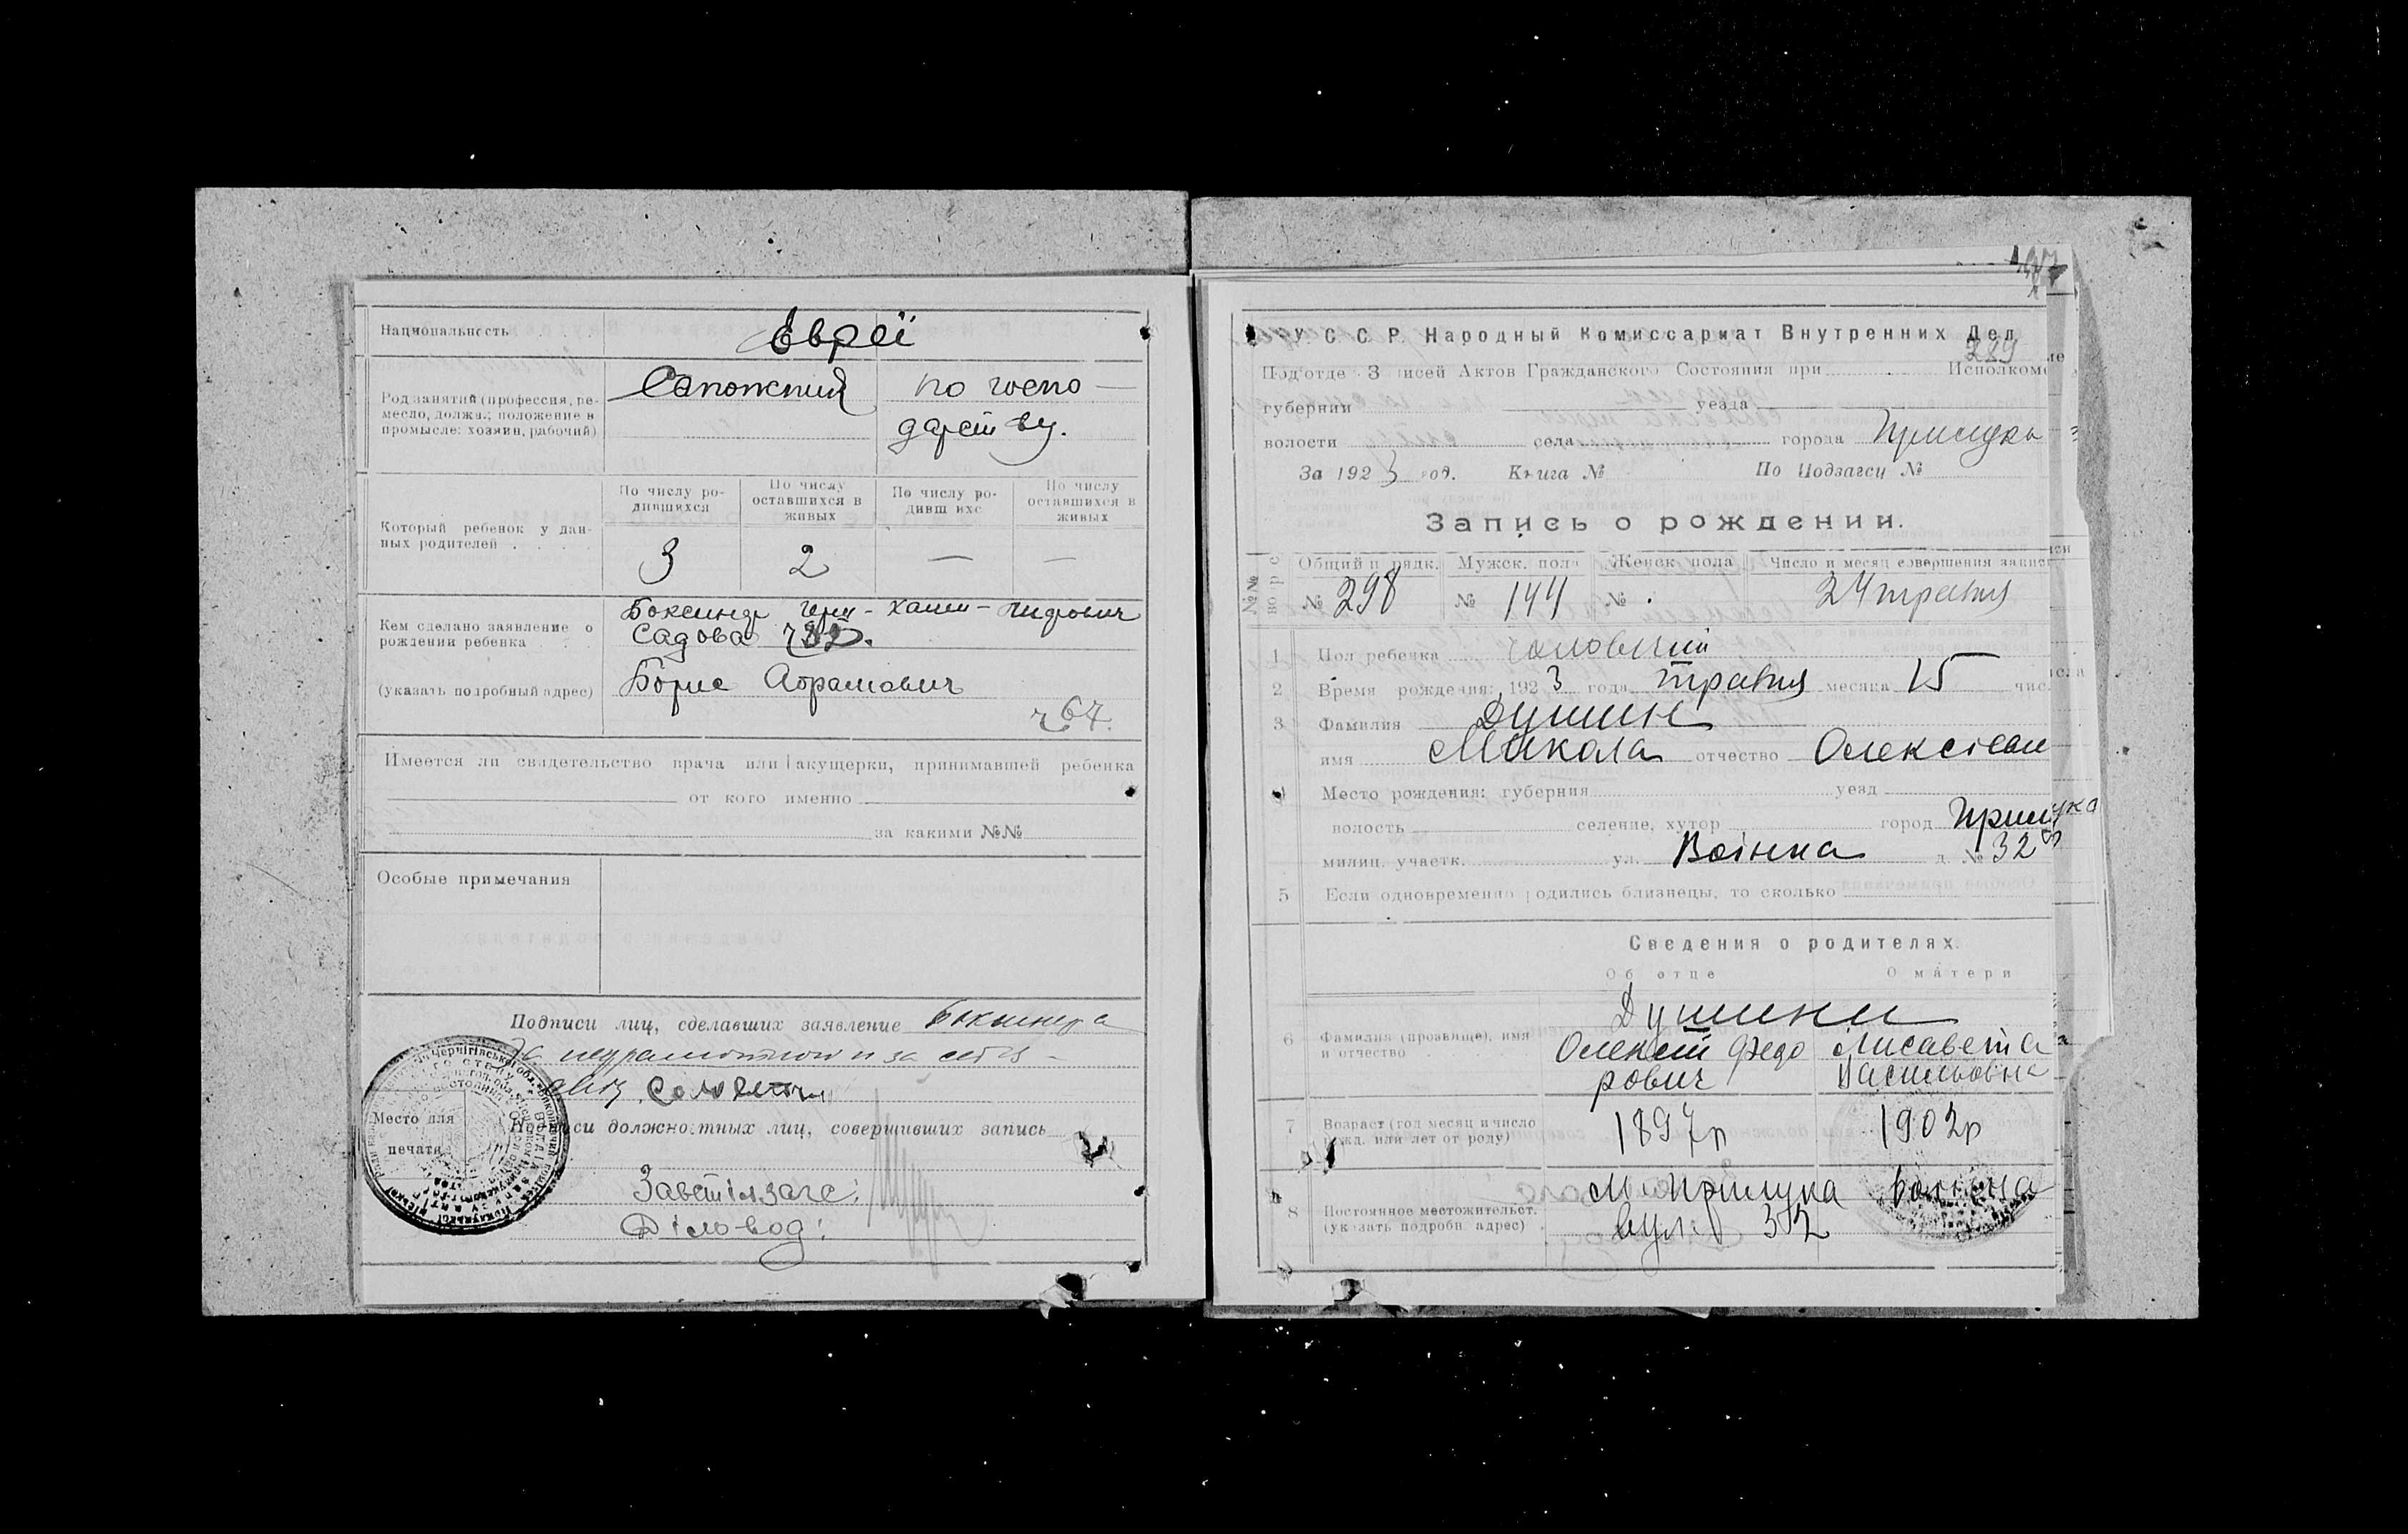 Национальность
Евреї
Род занятий (профессия, ремесло, должн.; положение в промысле: хозяин, рабочий)
Сапожник
по госпо-
дарству.
Который ребенок у данных родителей
По числу родившихся
По числу оставшихся в живых
По числу родившихся
По числу оставшихся в живых
3 2 — —
Кем сделано заявление о рождении ребенка
(указать подробный адрес)
Садова
Борис Абрамович
ч 67.
Имеется ли свидетельство врача или акушерки, принимавшей ребенка
от кого именно
за какими №№
Особые примечания
Подписи лиц, сделавших заявление
Место для печати
Подписи должностных лиц, совершивших запись
Діловод:
289
У. С. С. Р. Народный Комиссариат Внутренних Дел
Подотде Записей Актов Гражданского Состояния при Исполкоме
губернии уезда
волости села города Прилука
За 1923 год. Книга № По Подзагсу №
Запись о рождении.
Общий п рядк. Мужск. пола Женск. пола Число и месяц совершения записи
№ 298 № 144 № 24 травня
1 Пол ребенка чоловічий
2 Время рождения: 1923 года травня месяца 15 числа
3 Фамилия Душин
имя Микола отчество Олексієви
4 Место рождения: губерния уезд
волость селение, хутор город Прилука
милиц. участк. ул. Воінна д. № 32
5 Если одновременно родились близнецы, то сколько
Сведения о родителях.
Об отце О матери
6 Фамилия (прозвище), имя и отчество
Душини
Олексій Федо
рович
Лисавета
Васильовна
7 Возраст (год месяц и число рожд. или лет от роду)
1897р 1902р
8 Постоянное местожительст. (указать подробн. адрес)
м Прилука Воінна
вул. 32